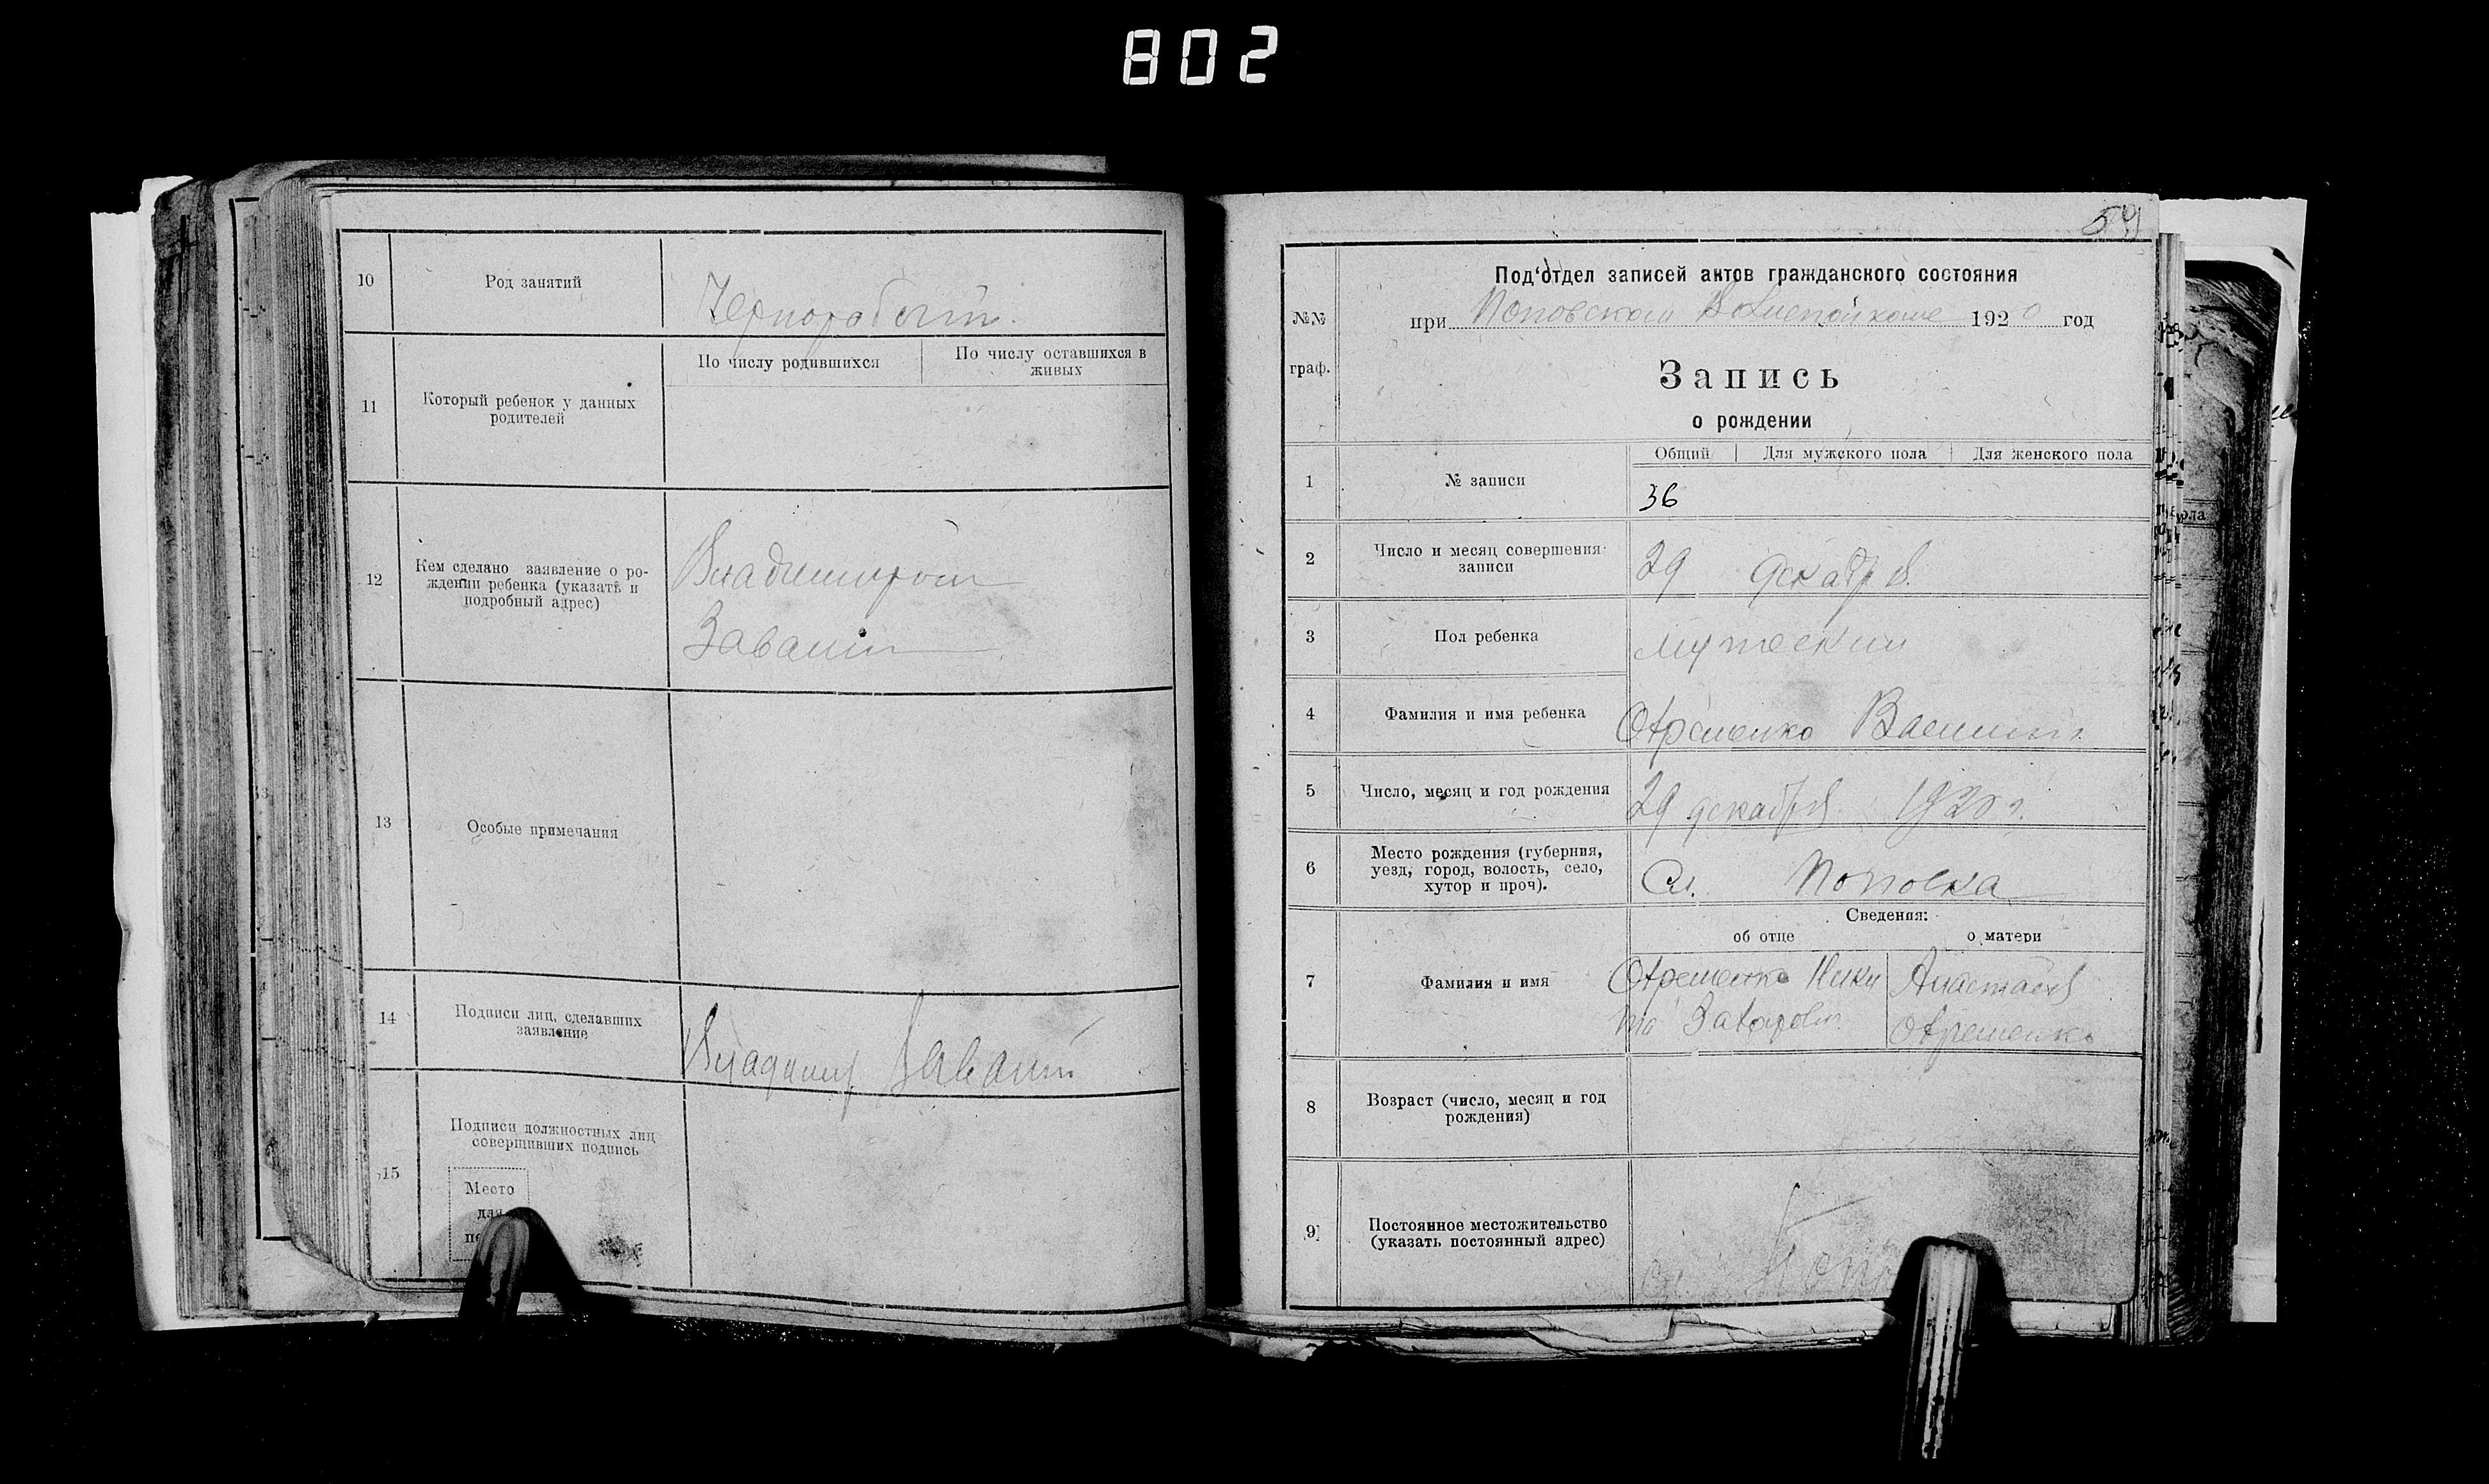 802
10
Род занятий
Чернорабочий.
11
Который ребенок у данных
родителей
По числу родившихся
По числу оставшихся в
живых
12
Кем сделано заявление о ро-
ждении ребенка (указать и
подробный адрес)
Владимиром
13
Особые примечания
14
Подписи лиц, сделавших
заявление
Владимир
15
Подписи должностных лиц
совершивших подпись
Место
59
№№
граф.
Под‘отдел записей актов гражданского состояния
при Поповском 1920 год
Запись
о рождении
1
№ записи
Общий
Для мужского пола
Для женского пола
36
2
Число и месяц совершения
записи
29 декабр.
3
Пол ребенка
мужеский
4
Фамилия и имя ребенка
Отрешенко Василий
5
Число, месяц и год рождения
29 декабря 1920 г.
6
Место рождения (губерния,
уезд, город, волость, село,
хутор и проч).
Сл. Поповка
Сведения:
об отце
о матери
7
Фамилия и имя
Отрешенко Ники
та Захаров
Анастасия
Отрешенко
8
Возраст (число, месяц и год
рождения)
9
Постоянное местожительство
(указать постоянный адрес)
сл.